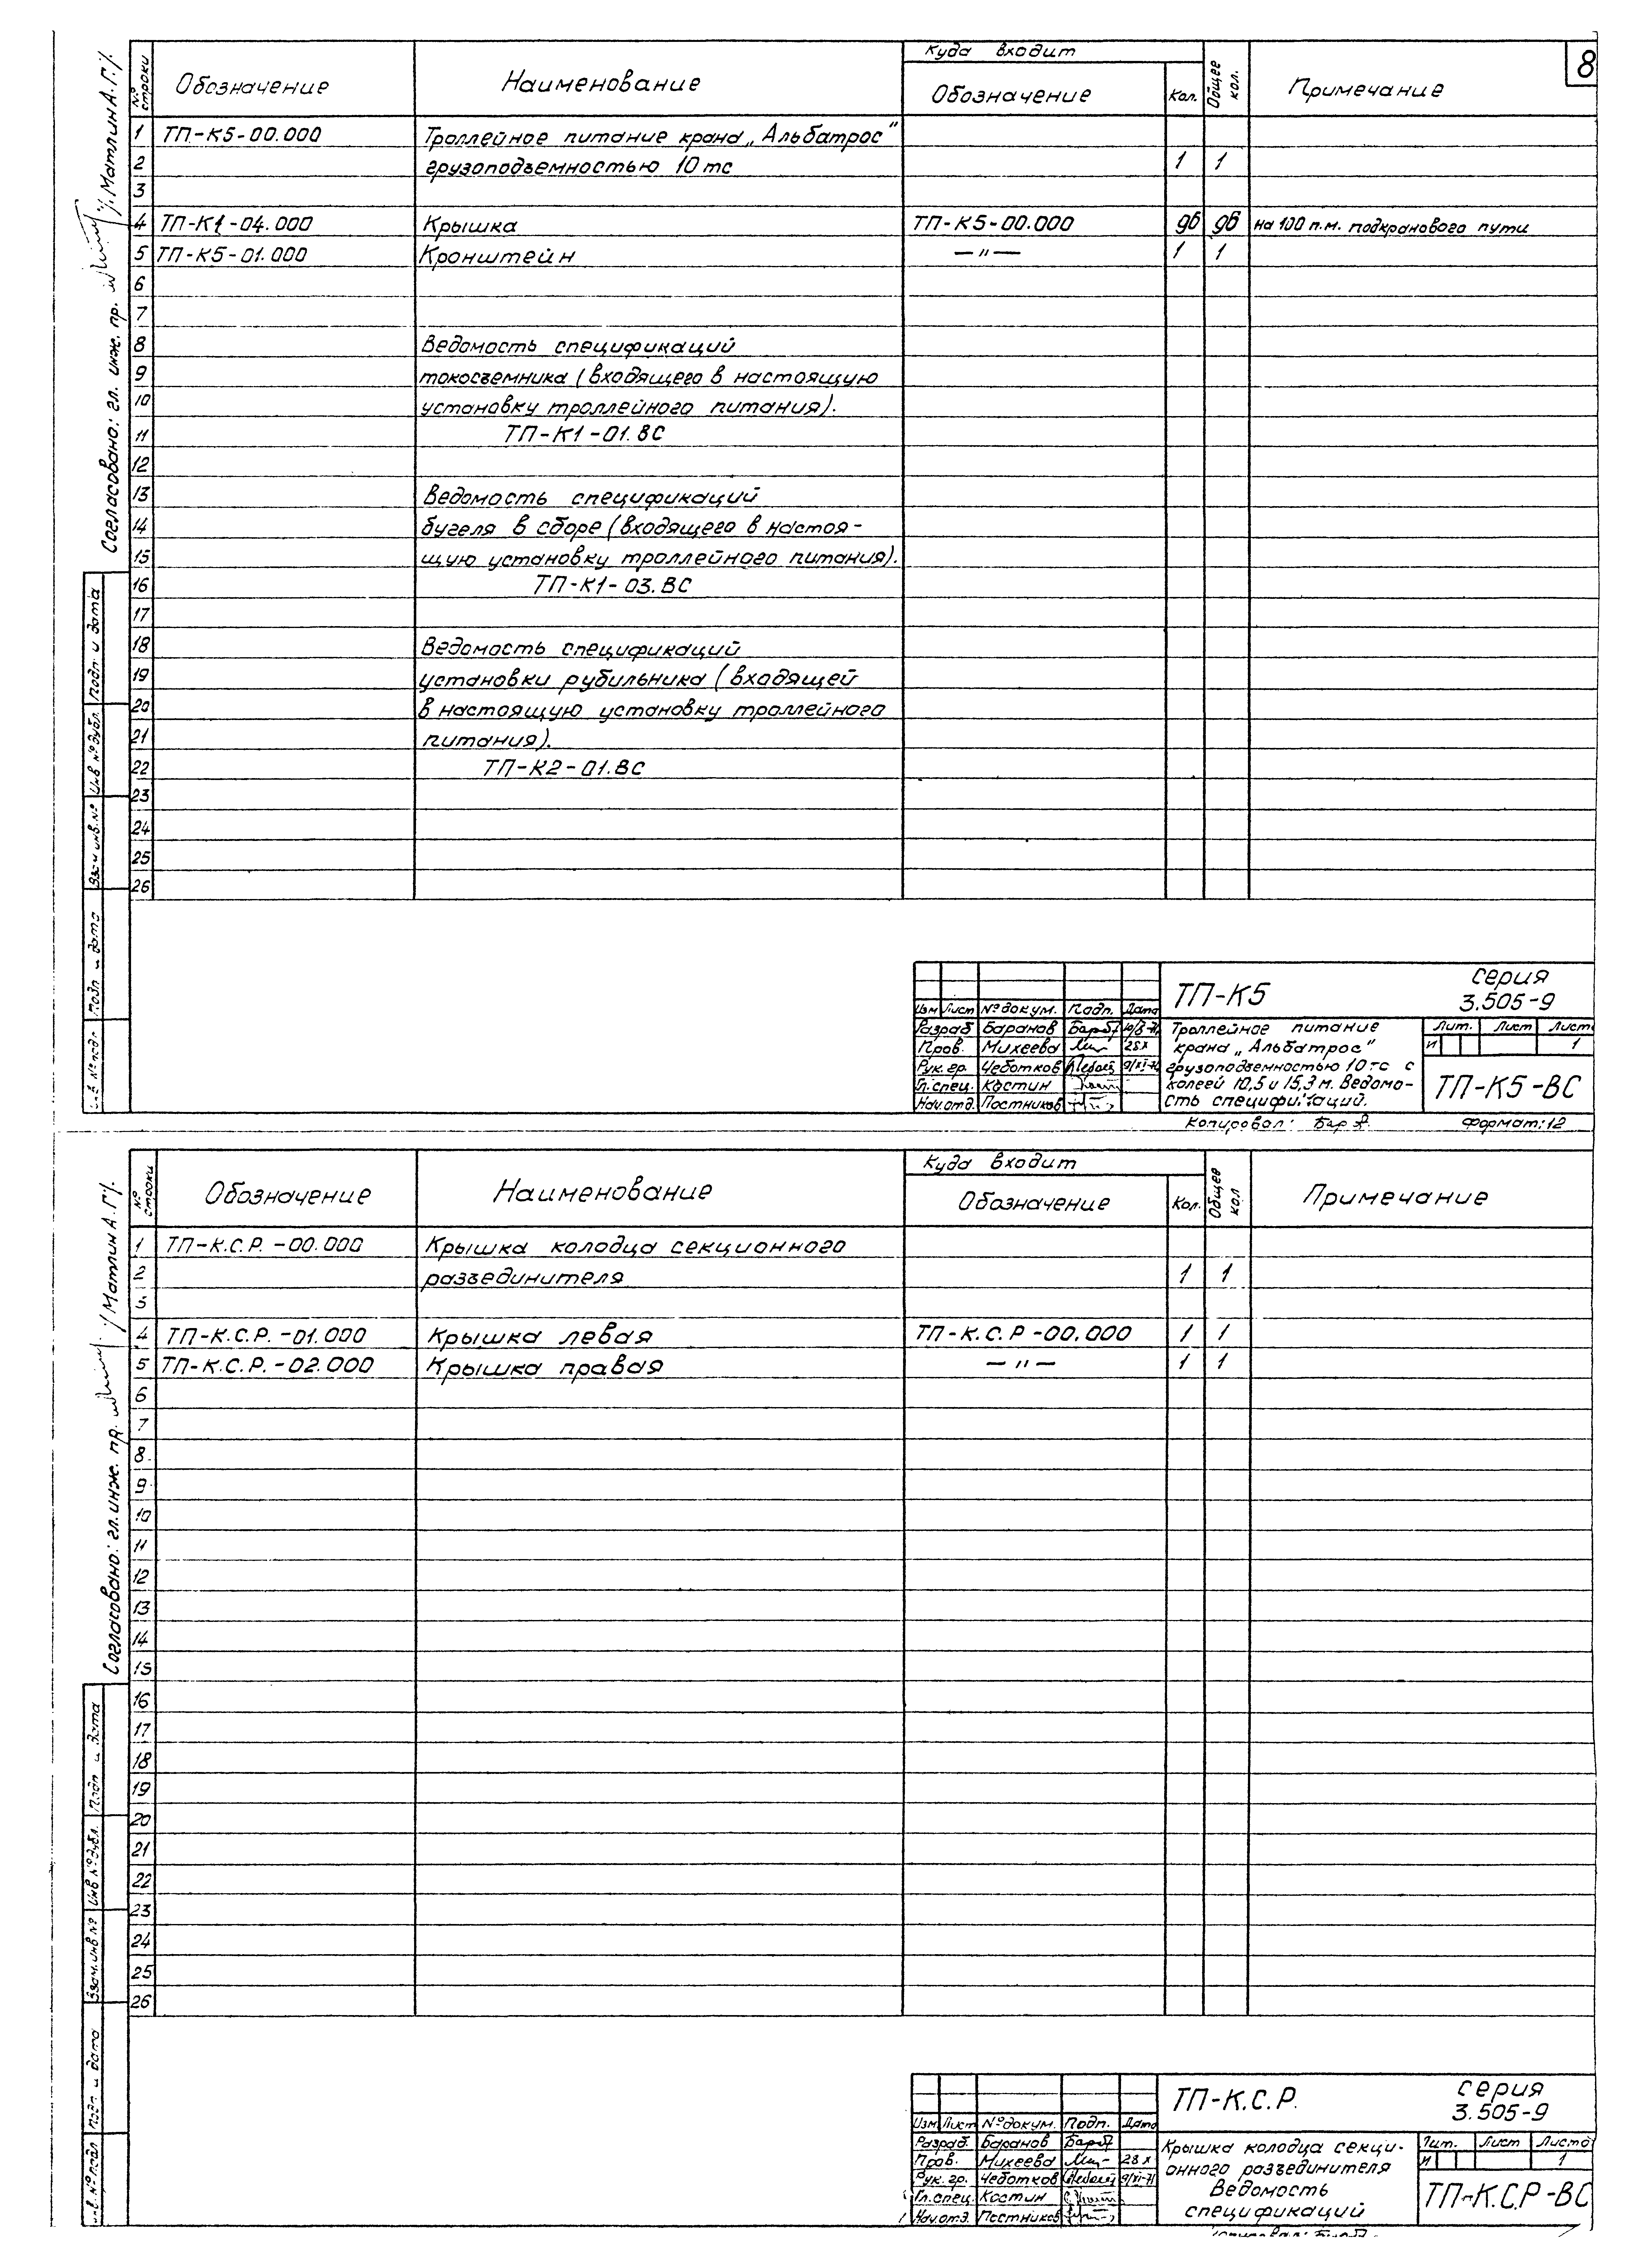 8
№ строки Обозначение Наименование Куда входит Общее кол. Примечание
Обозначение Кол.
1 ТП-К5-00.000 Троллейное питание крана „Альбатрос"
2 грузоподъемностью 10 тс 1 1
3
4 ТП-К1-04.000 Крышка ТП-К5-00.000 96 96 на 100 п.м. подкранового пути
5 ТП-К5-01.000 Кронштейн —"— 1 1
6
7
8 Ведомость спецификаций
9 токосъемника (входящего в настоящую
10 установку троллейного питания).
11 ТП-К1-01.ВС
12
13 Ведомость спецификаций
14 бугеля в сборе (входящего в настоя-
15 щую установку троллейного питания).
16 ТП-К1-03.ВС
17
18 Ведомость спецификаций
19 установки рубильника (входящей
20 в настоящую установку троллейного
21 питания).
22 ТП-К2-01.ВС
23
24
25
26
Согласовано: гл. инж. пр. /Матлин А.Г./
Подп. и дата
Инв № дубл.
Взам инв. №
Подп и дата
Инв № подл
ТП-К5 серия
3.505-9
Изм Лист № докум. Подп. Дата
Разраб Баранов
Пров. Михеева 28 X
Рук. гр. Чеботков
Гл. спец. Костин
Нач. отд. Постников
Троллейное питание
крана „Альбатрос"
грузоподъемностью 10 тс с
колеей 10,5 и 15,3 м. Ведомо-
сть спецификаций.
Лит. Лист Листо
И 1
ТП-К5-ВС
Копировал: Формат: 12
№ строки Обозначение Наименование Куда входит Общее кол Примечание
Обозначение Кол.
1 ТП-К.С.Р.-00.000 Крышка колодца секционного
2 разъединителя 1 1
3
4 ТП-К.С.Р.-01.000 Крышка левая ТП-К.С.Р-00.000 1 1
5 ТП-К.С.Р.-02.000 Крышка правая —"— 1 1
6
7
8
9
10
11
12
13
14
15
16
17
18
19
20
21
22
23
24
25
26
Согласовано: гл. инж. пр. /Матлин А.Г./
Подп и дата
Инв № дубл.
Взам. инв №
Подп и дата
инв. № подл
ТП-К.С.Р. серия
3.505-9
Изм Лист № докум. Подп. Дата
Разраб. Баранов
Пров. Михеева 28 X
Рук. гр. Чеботков
Гл. спец. Костин
Нач. отд. Постников
Крышка колодца секци-
онного разъединителя
Ведомость
спецификаций
Лит. Лист Листо
И 1
ТП-К.С.Р-ВС